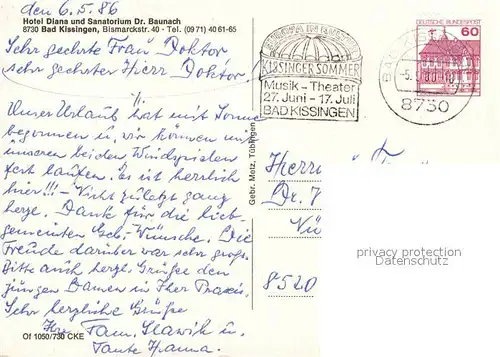 den 6.5.86
Hotel Diana und Sanatorium Dr. Baunach
8730 Bad Kissingen, Bismarckstr. 40 - Tel. (0971) 40 61-65
Sehr geehrte Frau Doktor
sehr geehrter Herr Doktor,
Unser Urlaub hat mit Sonne
begonnen u. wir können mit
unseren beiden Windspielen
fest laufen. Es ist herrlich
hier!!! - Nicht zuletzt ganz
herzl. Dank für die lieb-
gemeinten Geb.-Wünsche. Die
Freude darüber war sehr groß.
Bitte auch herzl. Grüße den
jungen Damen in Ihrer Praxis.
Sehr herzliche Grüße
Ihre Fam. Slawik u.
Tante Hanna.
Of 1050/730 CKE
Gebr. Metz, Tübingen
KISSINGER SOMMER
Musik-Theater
27. Juni - 17. Juli
BAD KISSINGEN
8730
DEUTSCHE BUNDESPOST
60
Herrn
Dr.
8520
privacy protection
Datenschutz